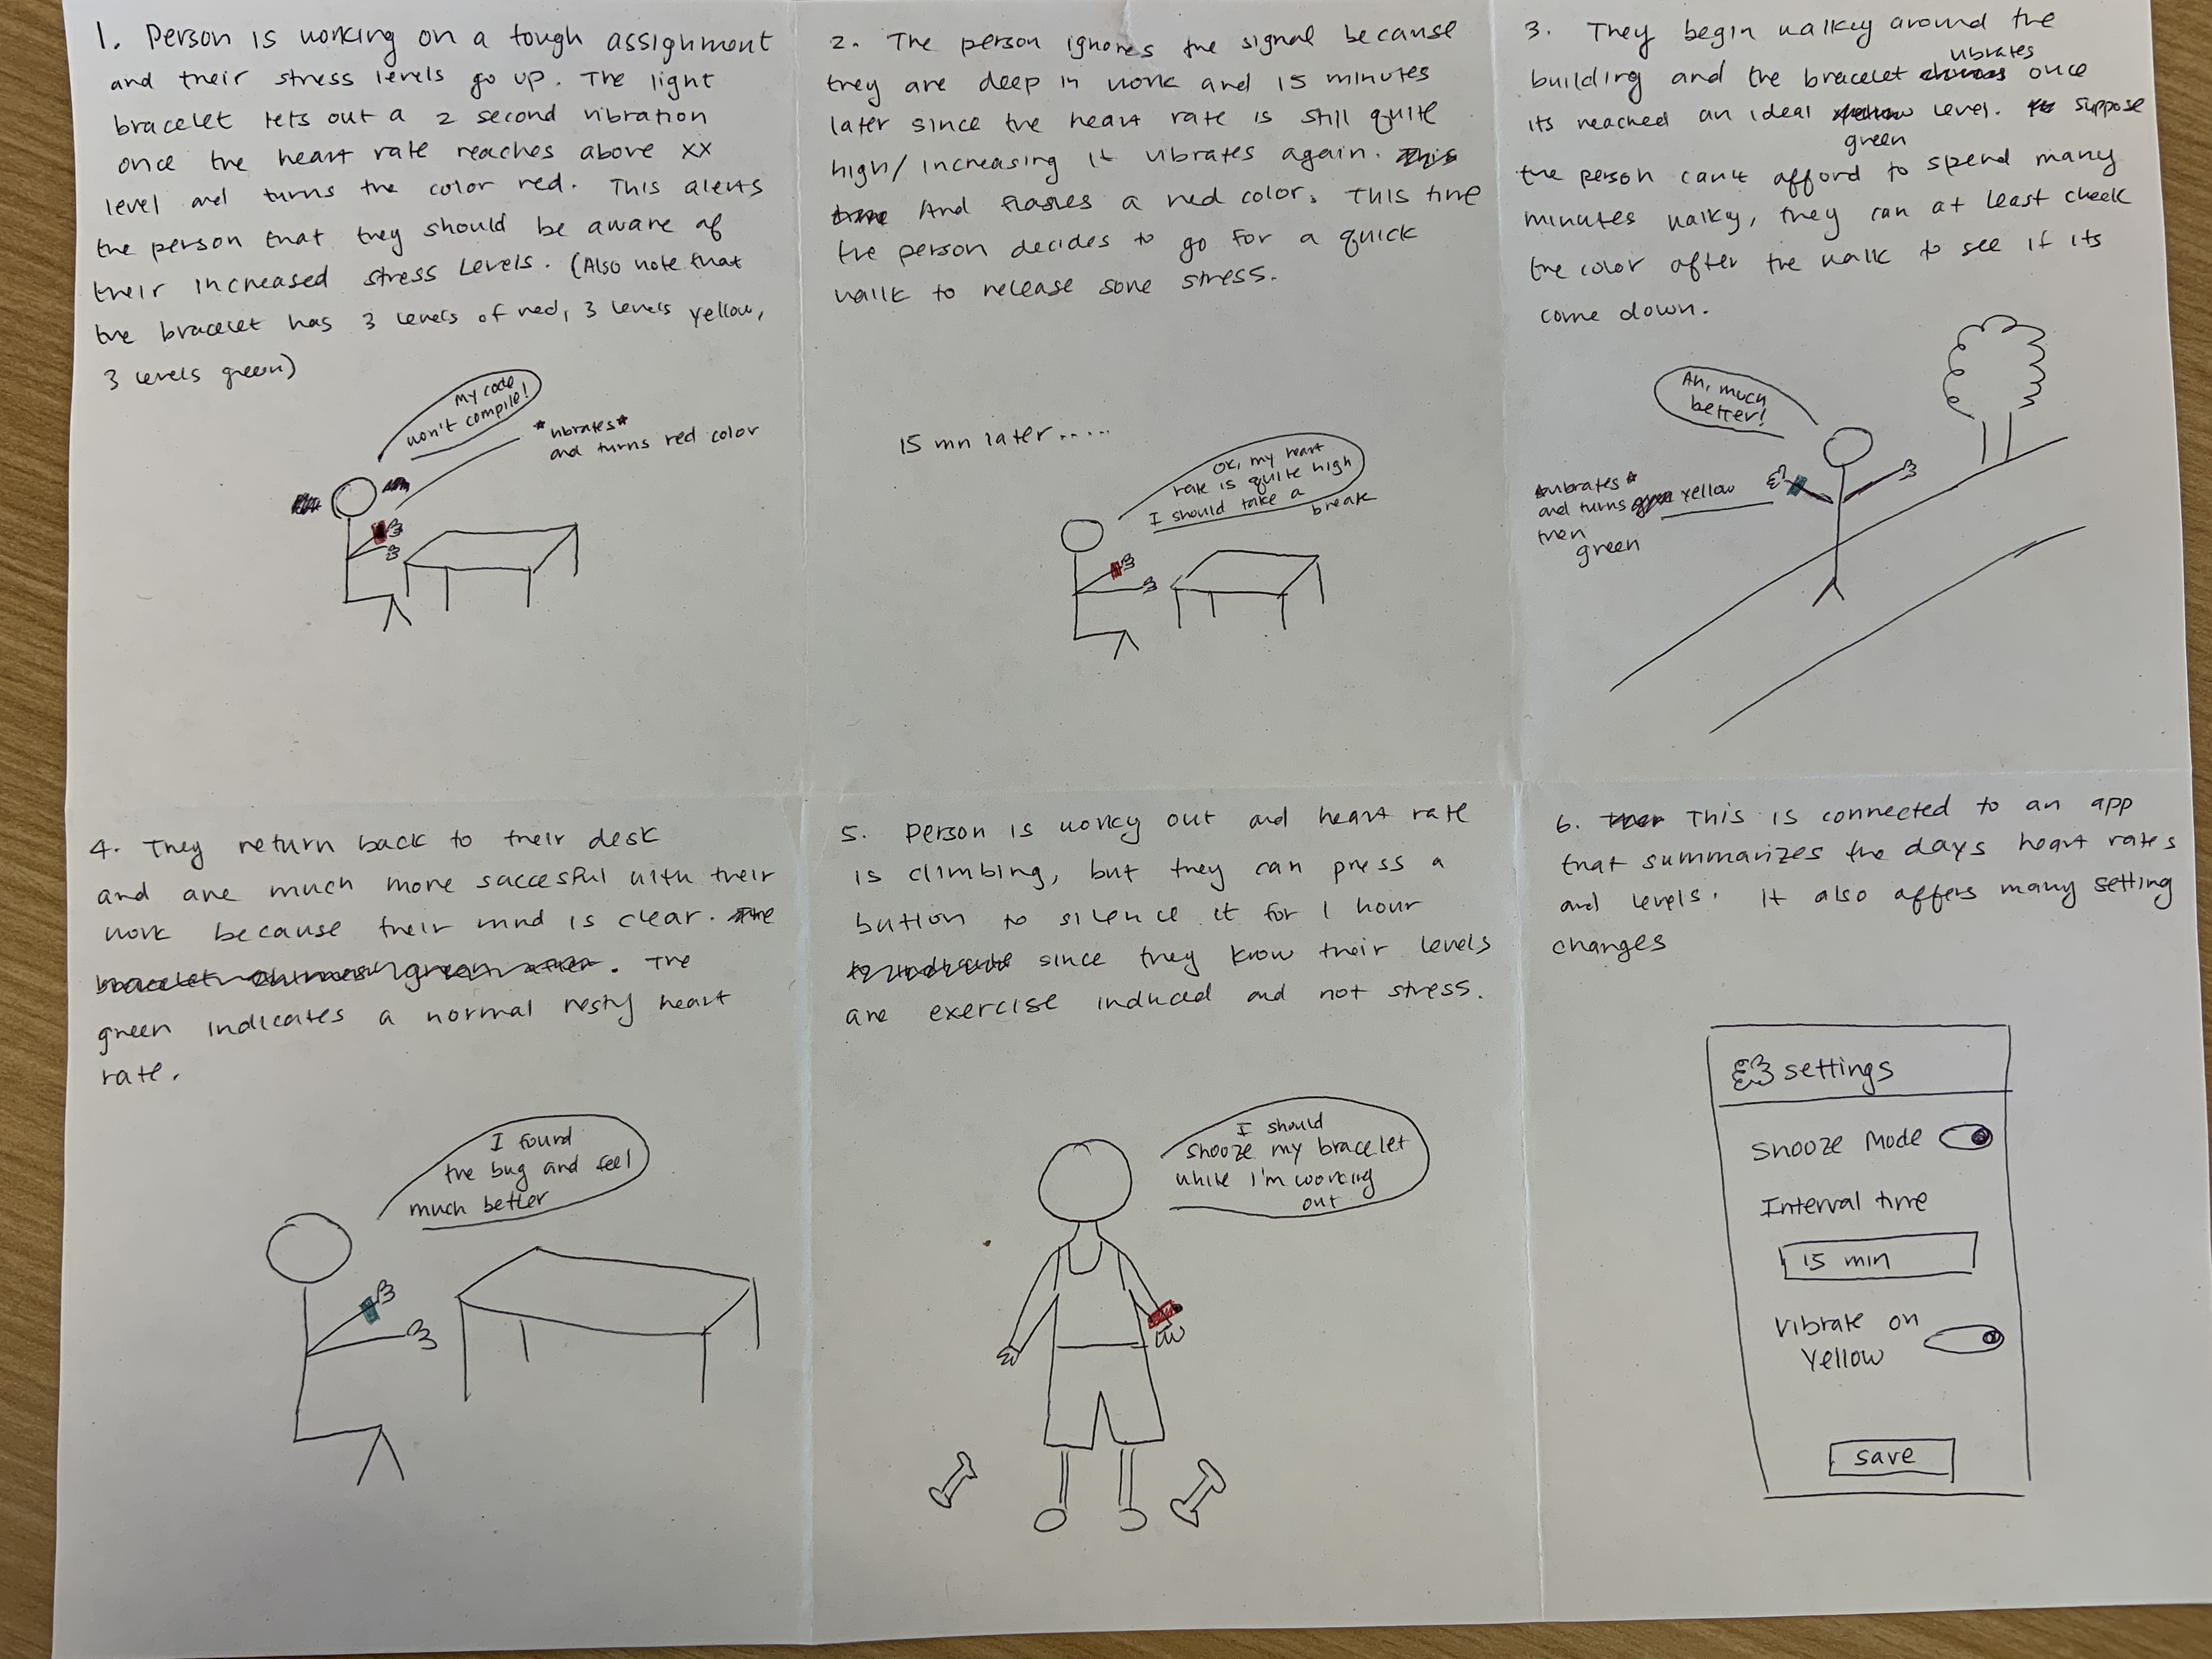 1. Person is working on a tough assignment
and their stress levels go up. The light
bracelet lets out a 2 second vibration
once the heart rate reaches above xx
level and turns the color red. This alerts
the person that they should be aware of
their increased stress levels. (Also note that
the bracelet has 3 levels of red, 3 levels yellow,
3 levels green)
my code
won't compile!
*vibrates*
and turns red color
2. The person ignores the signal because
they are deep in work and 15 minutes
later since the heart rate is still quite
high/increasing it vibrates again. This
time And flashes a red color. This time
the person decides to go for a quick
walk to release some stress.
15 mn later.....
OK, my heart
rate is quite high
I should take a
break
3. They begin walking around the
vibrates
building and the bracelet once
its reached an ideal level. suppose
green
the person can't afford to spend many
minutes walking, they can at least check
the color after the walk to see if its
come down.
Ah, much
better!
*vibrates*
and turns yellow
then
green
4. They return back to their desk
and are much more succesful with their
work because their mind is clear. The
bracelet chimes green after. The
green indicates a normal resting heart
rate.
I found
the bug and feel
much better
5. Person is working out and heart rate
is climbing, but they can press a
button to silence it for 1 hour
to indicate since they know their levels
are exercise induced and not stress.
I should
snooze my bracelet
while I'm working
out
6. This is connected to an app
that summarizes the days heart rates
and levels. It also offers many setting
changes
settings
Snooze Mode
Interval time
15 min
Vibrate on
Yellow
save